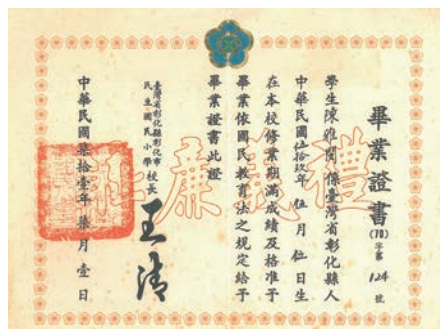 畢業證書
(70)字第124號
學生陳雅閔係臺灣省彰化縣人
中華民國伍拾玖年伍月伍日生
在本校修業期滿成績及格准予
畢業依國民教育法之規定給予
畢業證書此證
臺灣省彰化縣彰化市
民生國民小學校長
王清
中華民國柒拾壹年柒月壹日
禮義廉恥